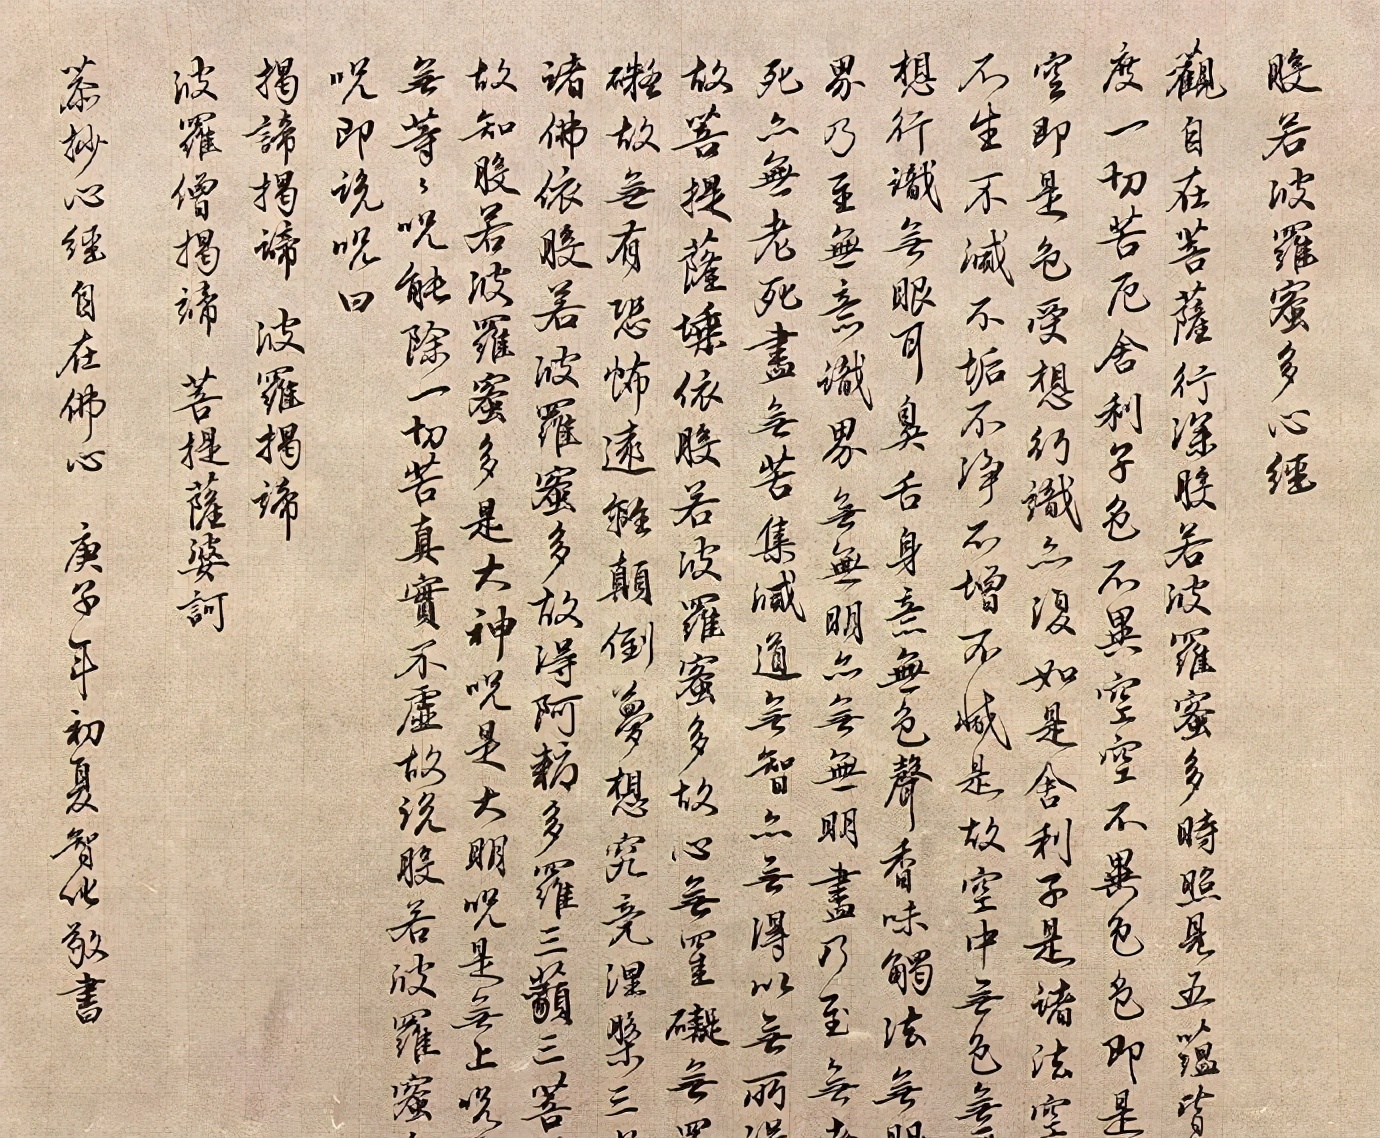 般若波羅蜜多心經
觀自在菩薩行深般若波羅蜜多時照見五蘊皆
度一切苦厄舍利子色不異空空不異色色即是
空即是色受想行識亦復如是舍利子是諸法空
不生不滅不垢不淨不增不減是故空中無色無
想行識無眼耳鼻舌身意無色聲香味觸法無眼
界乃至無意識界無無明亦無無明盡乃至無老
死亦無老死盡無苦集滅道無智亦無得以無所得
故菩提薩埵依般若波羅蜜多故心無罣礙無罣
礙故無有恐怖遠離顛倒夢想究竟涅槃三
諸佛依般若波羅蜜多故得阿耨多羅三藐三菩
故知般若波羅蜜多是大神咒是大明咒是無上咒
無等々咒能除一切苦真實不虛故說般若波羅蜜
咒即說咒曰
揭諦揭諦 波羅揭諦
波羅僧揭諦 菩提薩婆訶
恭抄心經自在佛心 庚子年初夏智化敬書